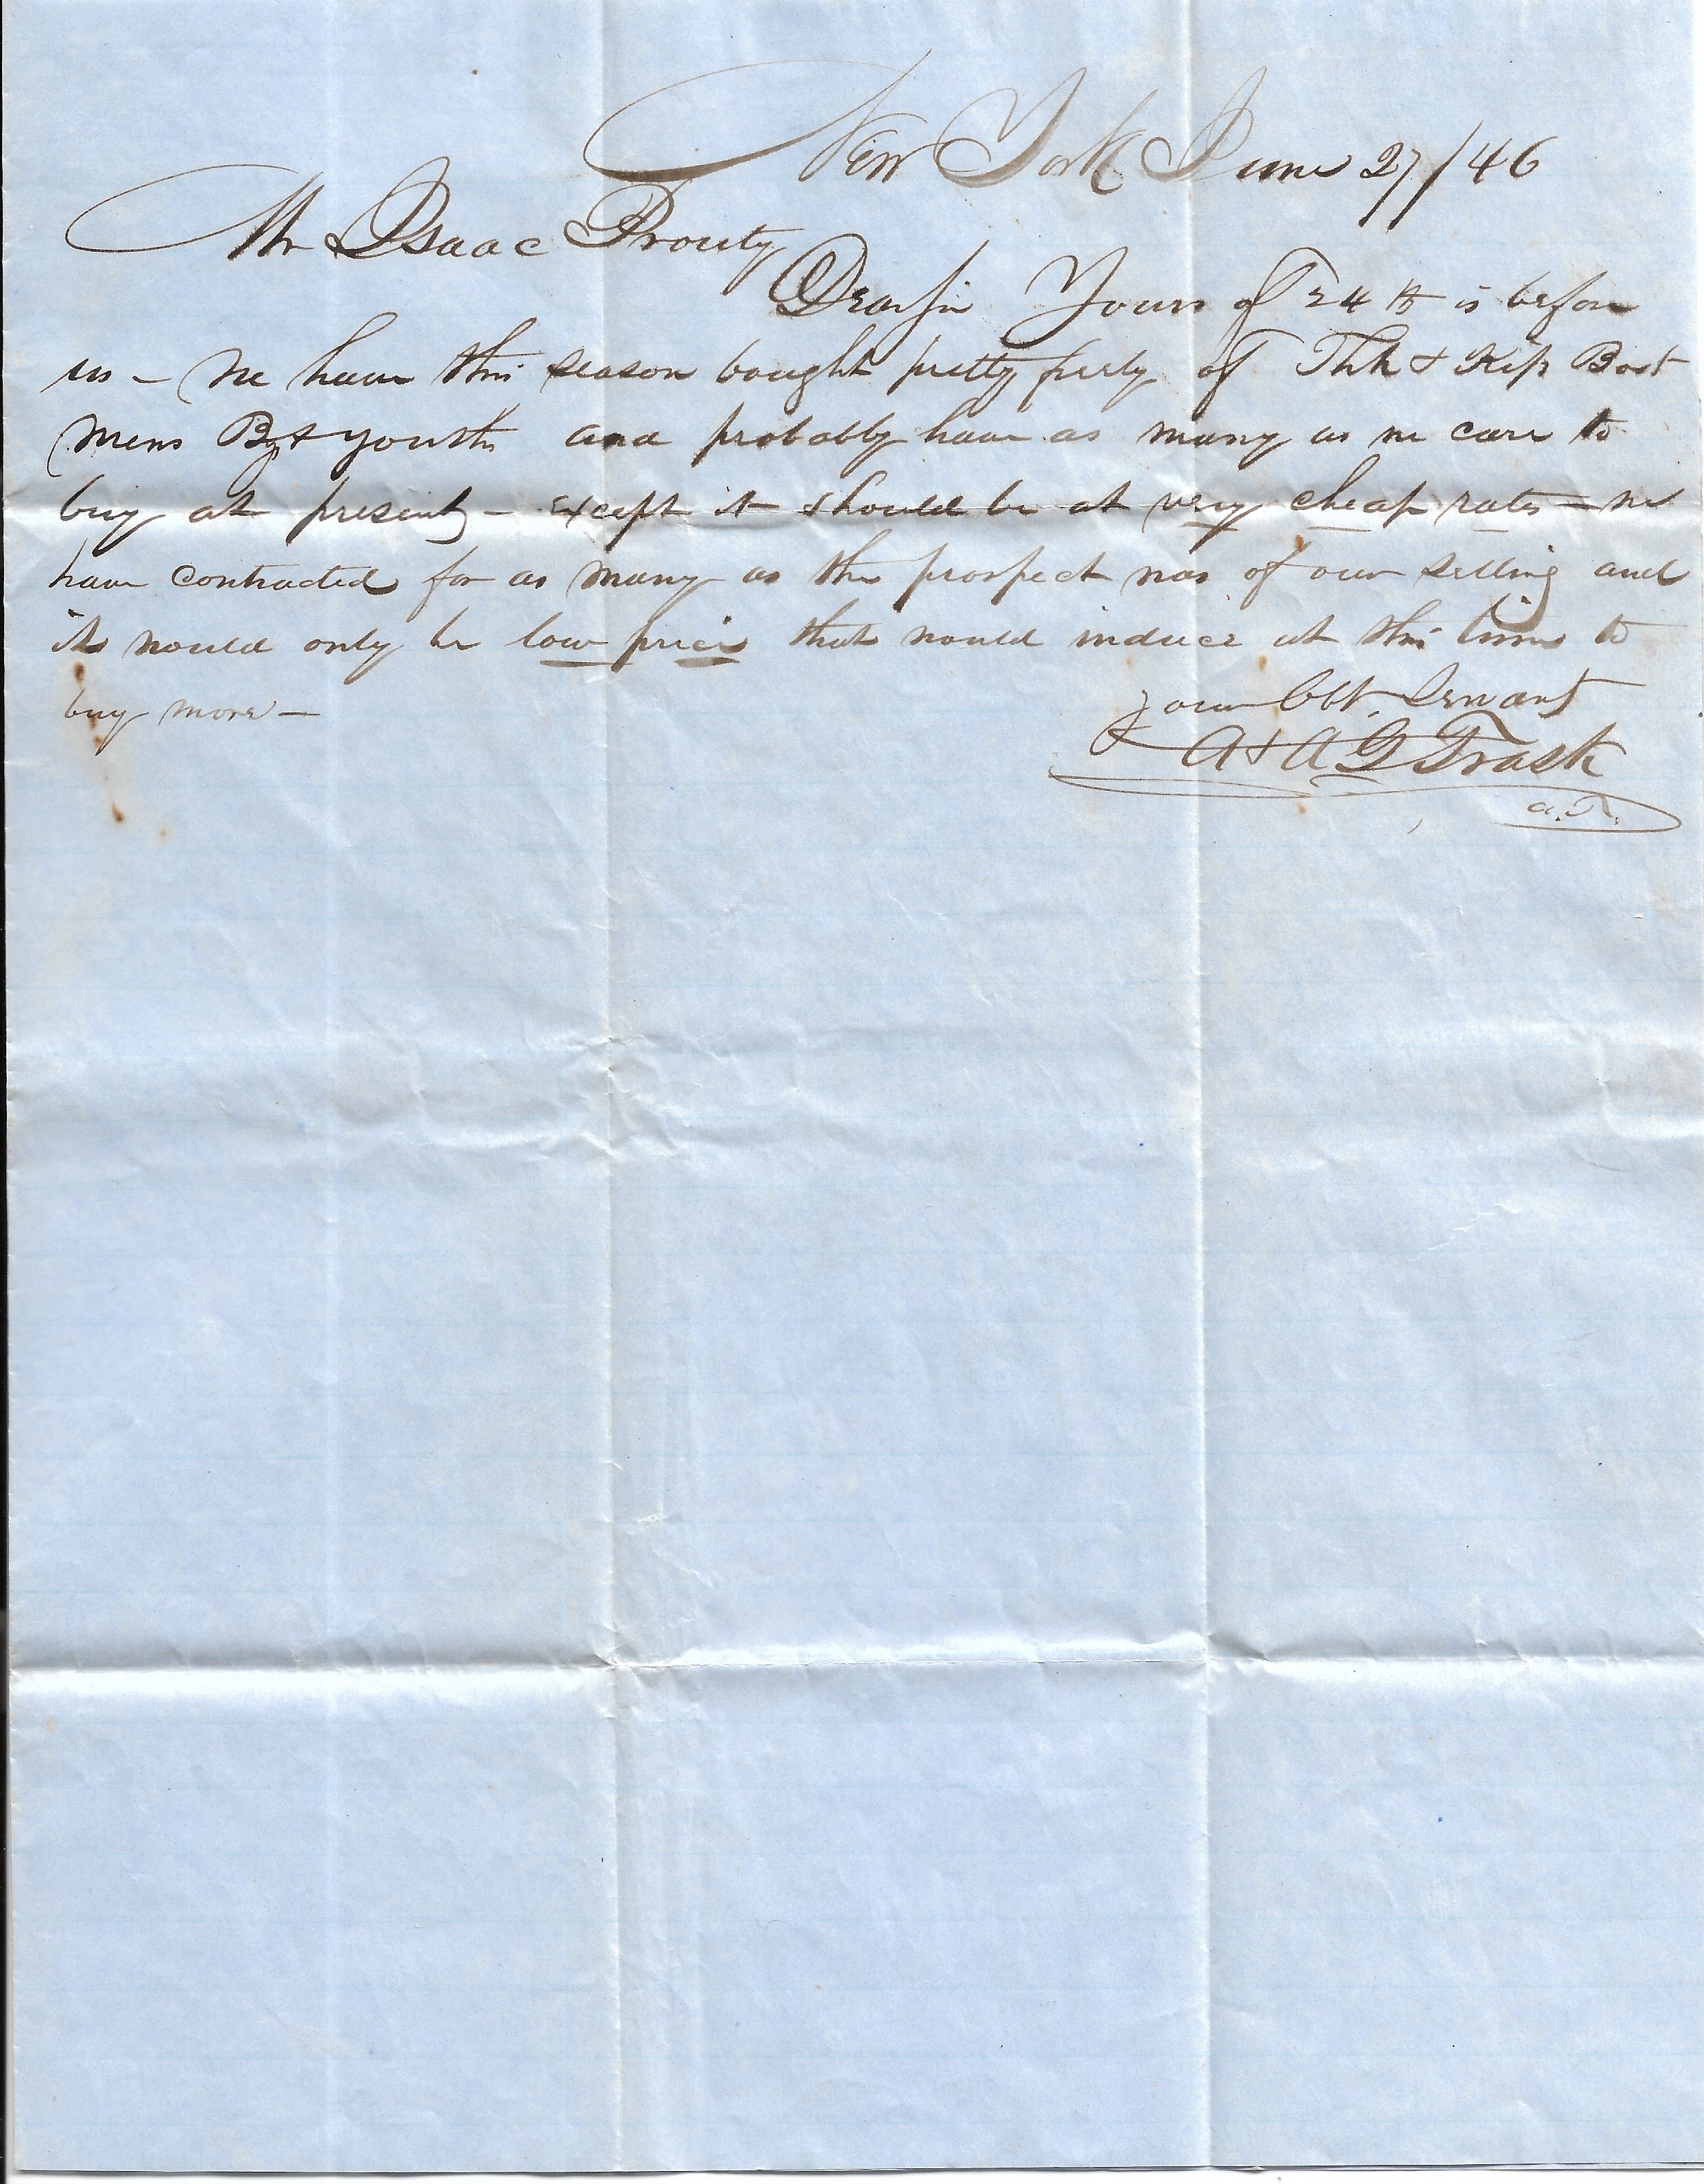 New York June 27/46
Mr Isaac Prouty
Dear Sir Yours of 24th is before
us – We have this season bought pretty freely of Thk & Kip Boot
Mens Bys & Youths and probably have as many as we care to
buy at present – except it should be at very cheap rates – we
have contracted for as many as the prospect was of our selling and
it would only be low prices that would induce at this time to
buy more –
Your Obt. Servant
A & A G Trask
A.T.